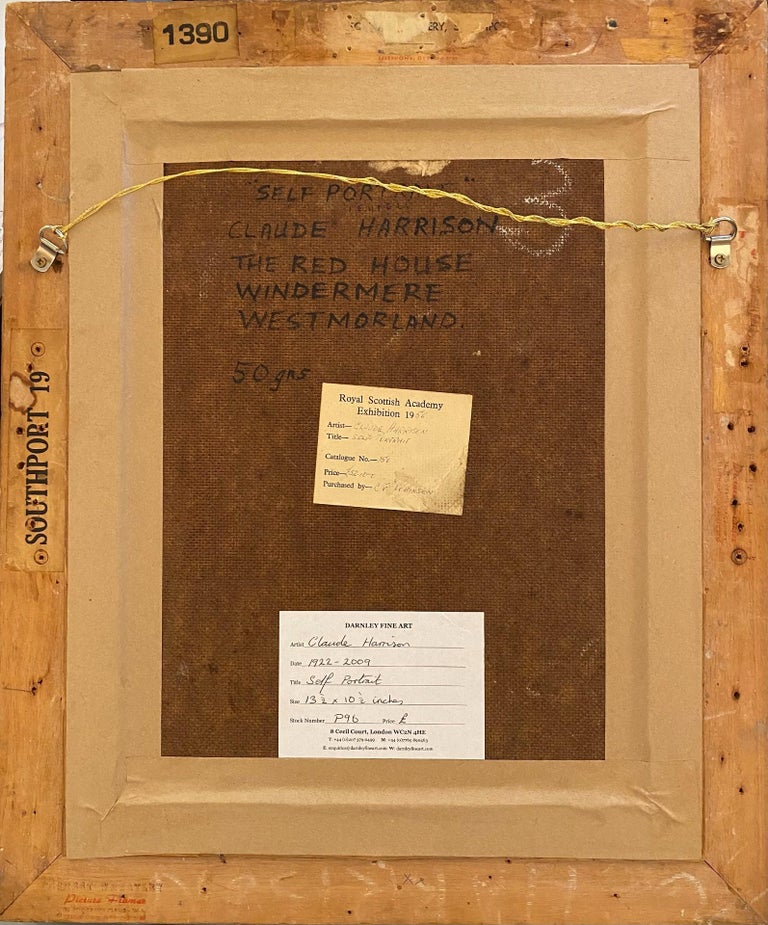 1390
"SELF POR
CLAUDE HARRISON
THE RED HOUSE
WINDERMERE
WESTMORLAND.
50 gns
SOUTHPORT 19
Royal Scottish Academy
Exhibition 19
Artist— CLAUDE HARRISON
Title— SELF PORTRAIT
Catalogue No.—
Price—
Purchased by—
DARNLEY FINE ART
Artist Claude Harrison
Date 1922-2009
Title Self Portrait
Size 13 ½ x 10 ½ inches
Stock Number P96 Price £
8 Cecil Court, London WC2N 4HE
E. enquiries@darnleyfineart.com W: darnleyfineart.com
Picture Framer